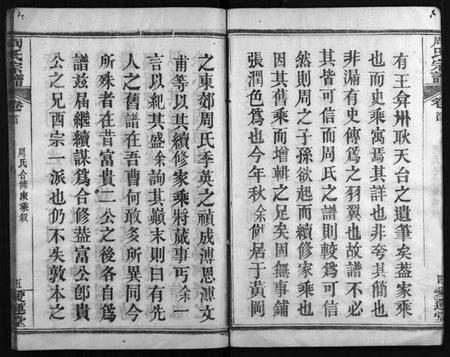 周氏宗譜
卷首
四
愛蓮堂
有王弇州耿天台之遺筆矣葢家乘
也而史乘寓焉其詳也非夸其簡也
非漏有史傳爲之羽翼也故譜不必
其皆可信而周氏之譜則較爲可信
然則周之子孫欲起而續修家乘也
因其舊乘而增輯之足矣固無事鋪
張潤色爲也今年秋余卽居于黃岡
之東郊周氏季英之禎成溥恩溥文
甫等以其續修家乘將蕆事丐余一
言以剏其盛余詢其巔末則曰有先
人之舊譜在吾曹何敢多所異同今
所殊者在昔富貴二公之後各自爲
譜兹屆繼續謀爲合修葢富公卽貴
公之兄西宗一派也仍不失敦本之
周氏宗譜
卷首
周氏合修家乘叙
五
愛蓮堂